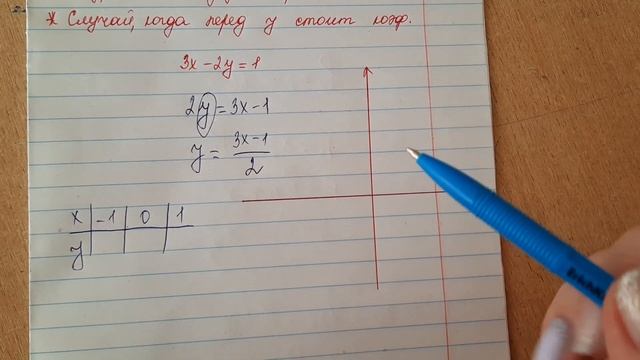 * Случай, когда перед y стоит коэф.
3x - 2y = 1
2y = 3x - 1
y = 3x - 1 / 2
x | -1 | 0 | 1
y